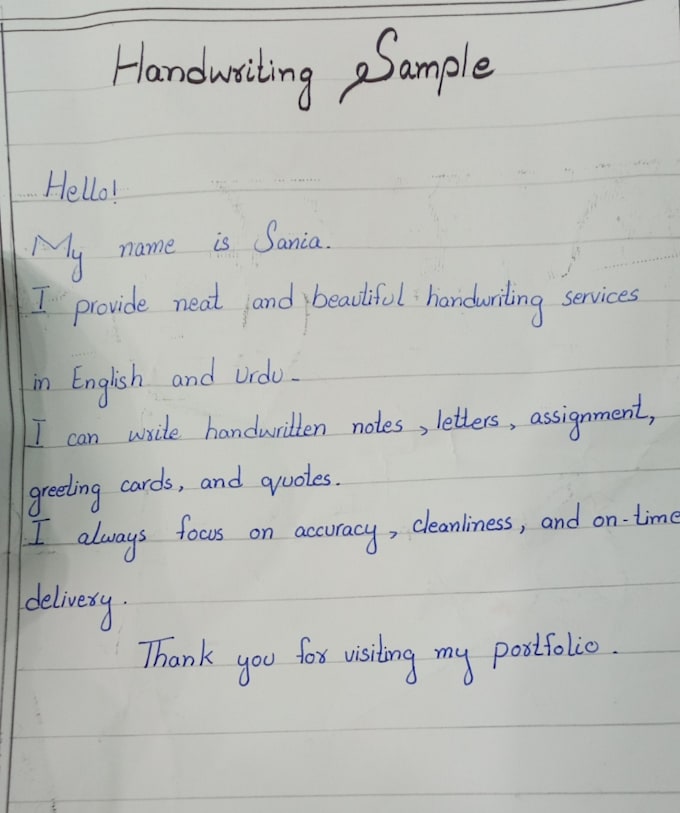 Handwriting Sample
Hello!
My name is Sania.
I provide neat and beautiful handwriting services
in English and Urdu-
I can write handwritten notes, letters, assignment,
greeting cards, and quotes.
I always focus on accuracy, cleanliness, and on-time
delivery.
Thank you for visiting my portfolio.